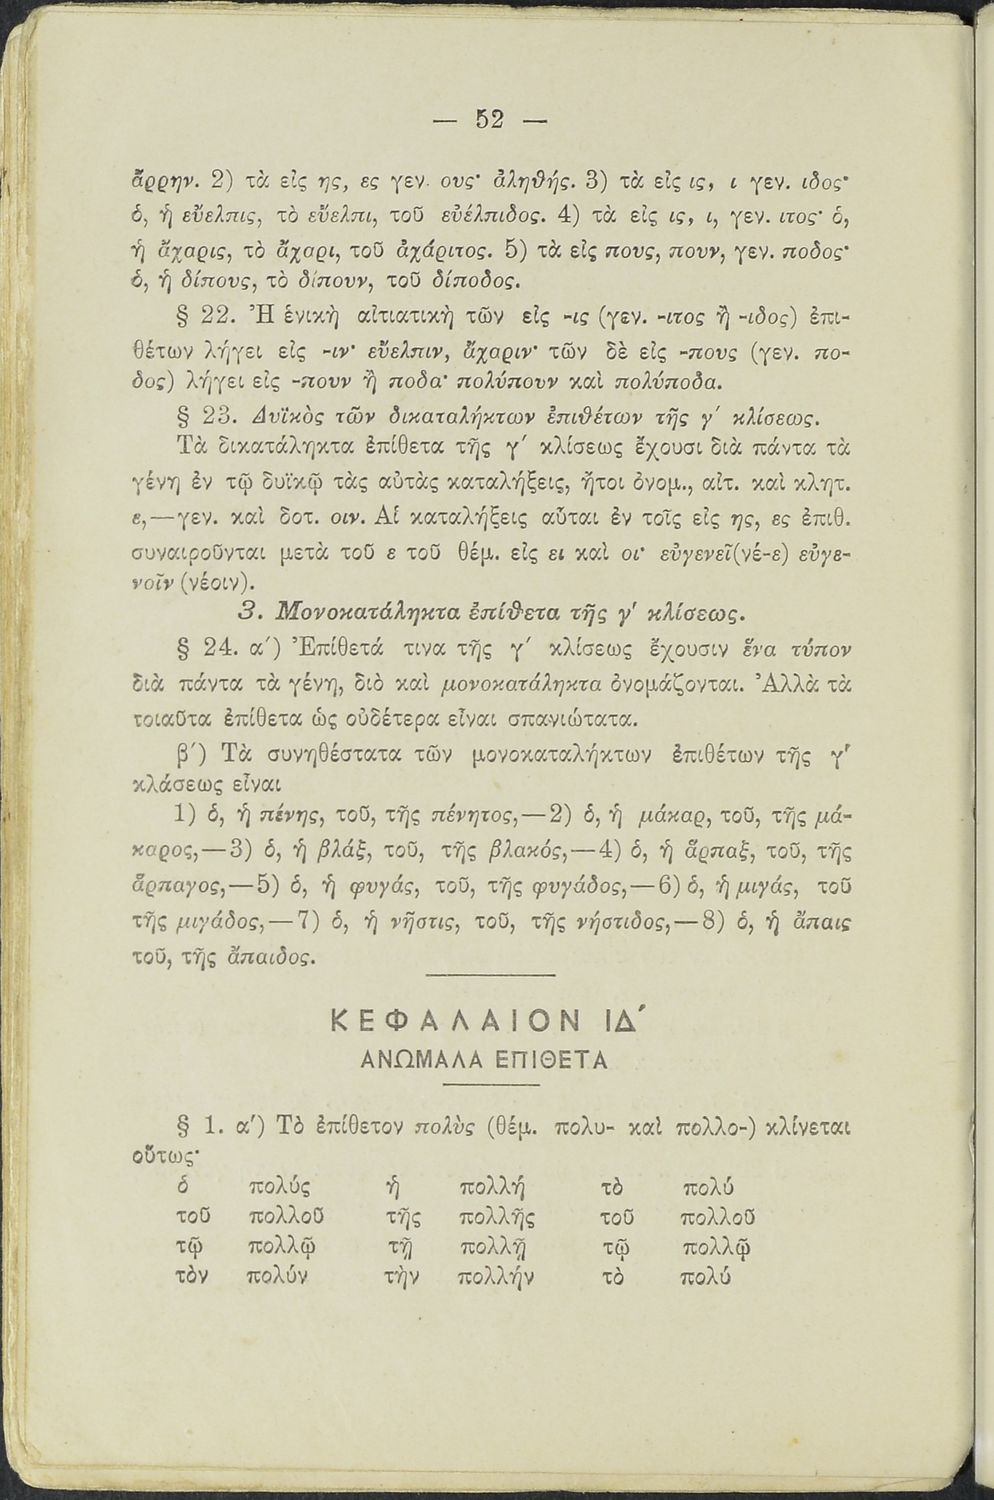 — 52 —
ἄρρην. 2) τὰ εἰς ης, ες γεν. ους· ἀληθής. 3) τὰ εἰς ις, ι γεν. ιδος·
ὁ, ἡ εὔελπις, τὸ εὔελπι, τοῦ εὐέλπιδος. 4) τὰ εἰς ις, ι, γεν. ιτος· ὁ,
ἡ ἄχαρις, τὸ ἄχαρι, τοῦ ἀχάριτος. 5) τὰ εἰς πους, πουν, γεν. ποδος·
ὁ, ἡ δίπους, τὸ δίπουν, τοῦ δίποδος.
§ 22. Ἡ ἑνικὴ αἰτιατικὴ τῶν εἰς -ις (γεν. -ιτος ἢ -ιδος) ἐπι-
θέτων λήγει εἰς -ιν· εὔελπιν, ἄχαριν· τῶν δὲ εἰς -πους (γεν. πο-
δος) λήγει εἰς -πουν ἢ ποδα· πολύπουν καὶ πολύποδα.
§ 23. Δυϊκὸς τῶν δικαταλήκτων ἐπιθέτων τῆς γ΄ κλίσεως.
Τὰ δικατάληκτα ἐπίθετα τῆς γ΄ κλίσεως ἔχουσι διὰ πάντα τὰ
γένη ἐν τῷ δυϊκῷ τὰς αὐτὰς καταλήξεις, ἤτοι ὀνομ., αἰτ. καὶ κλητ.
ε,—γεν. καὶ δοτ. οιν. Αἱ καταλήξεις αὗται ἐν τοῖς εἰς ης, ες ἐπιθ.
συναιροῦνται μετὰ τοῦ ε τοῦ θέμ. εἰς ει καὶ οι· εὐγενεῖ(νέ-ε) εὐγε-
νοῖν (νέοιν).
3. Μονοκατάληκτα ἐπίθετα τῆς γ΄ κλίσεως.
§ 24. α΄) Ἐπίθετά τινα τῆς γ΄ κλίσεως ἔχουσιν ἕνα τύπον
διὰ πάντα τὰ γένη, διὸ καὶ μονοκατάληκτα ὀνομάζονται. Ἀλλὰ τὰ
τοιαῦτα ἐπίθετα ὡς οὐδέτερα εἶναι σπανιώτατα.
β΄) Τὰ συνηθέστατα τῶν μονοκαταλήκτων ἐπιθέτων τῆς γ΄
κλάσεως εἶναι
1) ὁ, ἡ πένης, τοῦ, τῆς πένητος,—2) ὁ, ἡ μάκαρ, τοῦ, τῆς μά-
καρος,—3) ὁ, ἡ βλάξ, τοῦ, τῆς βλακός,—4) ὁ, ἡ ἅρπαξ, τοῦ, τῆς
ἅρπαγος,—5) ὁ, ἡ φυγάς, τοῦ, τῆς φυγάδος,—6) ὁ, ἡ μιγάς, τοῦ
τῆς μιγάδος,—7) ὁ, ἡ νῆστις, τοῦ, τῆς νήστιδος,—8) ὁ, ἡ ἄπαις
τοῦ, τῆς ἄπαιδος.
ΚΕΦΑΛΑΙΟΝ ΙΔ΄
ΑΝΩΜΑΛΑ ΕΠΙΘΕΤΑ
§ 1. α΄) Τὸ ἐπίθετον πολὺς (θέμ. πολυ- καὶ πολλο-) κλίνεται
οὕτως·
ὁ πολύς ἡ πολλή τὸ πολύ
τοῦ πολλοῦ τῆς πολλῆς τοῦ πολλοῦ
τῷ πολλῷ τῇ πολλῇ τῷ πολλῷ
τὸν πολύν τὴν πολλήν τὸ πολύ